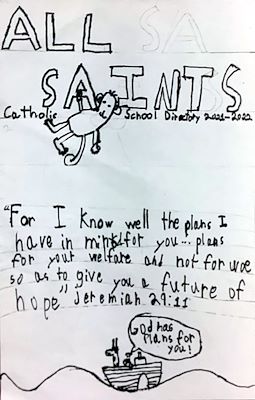 ALL SA
SAINTS
Catholic School Directory 2021-2022
"For I know well the plans I
have in mind for you... plans
for your welfare and not for woe
so as to give you a future of
hope" Jeremiah 29:11
God has
Plans for
you!